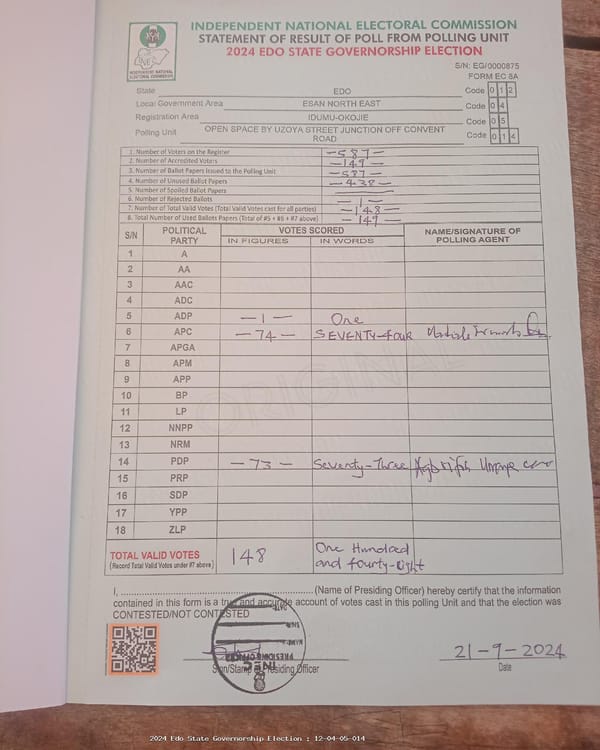 INDEPENDENT NATIONAL ELECTORAL COMMISSION
STATEMENT OF RESULT OF POLL FROM POLLING UNIT
2024 EDO STATE GOVERNORSHIP ELECTION
INEC
INDEPENDENT NATIONAL
ELECTORAL COMMISSION
S/N: EG/0000875
FORM EC 8A
State EDO Code 0 1 2
Local Government Area ESAN NORTH EAST Code 0 4
Registration Area IDUMU-OKOJIE Code 0 5
Polling Unit OPEN SPACE BY UZOYA STREET JUNCTION OFF CONVENT ROAD Code 0 1 4
1. Number of Voters on the Register -587-
2. Number of Accredited Voters -149-
3. Number of Ballot Papers Issued to the Polling Unit -587-
4. Number of Unused Ballot Papers -438-
5. Number of Spoiled Ballot Papers
6. Number of Rejected Ballots -1-
7. Number of Total Valid Votes (Total Valid Votes cast for all parties) -148-
8. Total Number of Used Ballots Papers (Total of #5 + #6 + #7 above) -149-
S/N POLITICAL PARTY VOTES SCORED NAME/SIGNATURE OF POLLING AGENT
IN FIGURES IN WORDS
1 A
2 AA
3 AAC
4 ADC
5 ADP -1- One
6 APC -74- SEVENTY-FOUR
7 APGA
8 APM
9 APP
10 BP
11 LP
12 NNPP
13 NRM
14 PDP -73- Seventy-Three
15 PRP
16 SDP
17 YPP
18 ZLP
ORIGINAL
TOTAL VALID VOTES 148 One Hundred
(Record Total Valid Votes under #7 above) and fourty-Eight
I, (Name of Presiding Officer) hereby certify that the information
contained in this form is a true and accurate account of votes cast in this polling Unit and that the election was
CONTESTED/NOT CONTESTED
PRESIDING OFFICER
INEC
21-9-2024
Sign/Stamp of Presiding Officer Date
2024 Edo State Governorship Election : 12-04-05-014